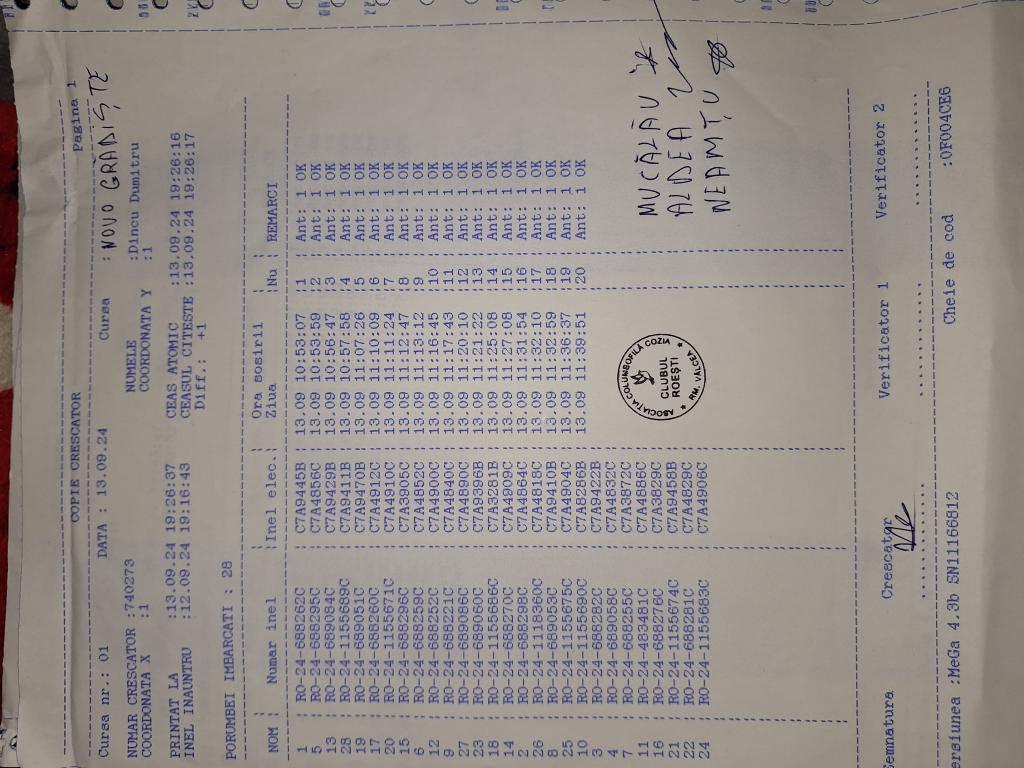 COPIE CRESCATOR Pagina 1
Cursa nr.: 01 DATA : 13.09.24 Cursa : NOVO GRĂDIȘTE
NUMAR CRESCATOR :740273 NUMELE :Dincu Dumitru
COORDONATA X :1 COORDONATA Y :1
PRINTAT LA :13.09.24 19:26:37 CEAS ATOMIC :13.09.24 19:26:16
INEL INAUNTRU :12.09.24 19:16:43 CEASUL CITESTE :13.09.24 19:26:17
Diff.: +1
PORUMBEI IMBARCATI : 28
NOM Numar inel Inel elec. Ora sosirii Nu REMARCI
Ziua
1 : RO-24-688262C : C7A9445B : 13.09 10:53:07 : 1 Ant: 1 OK
5 : RO-24-688295C : C7A4856C : 13.09 10:53:59 : 2 Ant: 1 OK
13 : RO-24-689084C : C7A9429B : 13.09 10:56:47 : 3 Ant: 1 OK
28 : RO-24-1155689C : C7A9411B : 13.09 10:57:58 : 4 Ant: 1 OK
19 : RO-24-689051C : C7A9470B : 13.09 11:07:26 : 5 Ant: 1 OK
17 : RO-24-688260C : C7A4912C : 13.09 11:10:09 : 6 Ant: 1 OK
20 : RO-24-1155671C : C7A4910C : 13.09 11:11:24 : 7 Ant: 1 OK
15 : RO-24-688296C : C7A3905C : 13.09 11:12:47 : 8 Ant: 1 OK
6 : RO-24-688259C : C7A4852C : 13.09 11:13:12 : 9 Ant: 1 OK
12 : RO-24-688252C : C7A4900C : 13.09 11:16:45 : 10 Ant: 1 OK
9 : RO-24-688221C : C7A4840C : 13.09 11:17:43 : 11 Ant: 1 OK
27 : RO-24-689086C : C7A4890C : 13.09 11:20:10 : 12 Ant: 1 OK
23 : RO-24-689060C : C7A9396B : 13.09 11:21:22 : 13 Ant: 1 OK
18 : RO-24-1155686C : C7A3281B : 13.09 11:25:08 : 14 Ant: 1 OK
14 : RO-24-688270C : C7A4909C : 13.09 11:27:08 : 15 Ant: 1 OK
2 : RO-24-688298C : C7A4864C : 13.09 11:31:54 : 16 Ant: 1 OK
26 : RO-24-1118360C : C7A4818C : 13.09 11:32:10 : 17 Ant: 1 OK
8 : RO-24-689053C : C7A9410B : 13.09 11:32:59 : 18 Ant: 1 OK
25 : RO-24-1155675C : C7A4904C : 13.09 11:36:37 : 19 Ant: 1 OK
10 : RO-24-1155690C : C7A8286B : 13.09 11:39:51 : 20 Ant: 1 OK
3 : RO-24-688282C : C7A9422B
4 : RO-24-689058C : C7A4832C
7 : RO-24-688255C : C7A3872C
11 : RO-24-483481C : C7A4886C
16 : RO-24-688276C : C7A3829C
21 : RO-24-1155674C : C7A9458B
22 : RO-24-688281C : C7A4829C
24 : RO-24-1155683C : C7A4906C
ASOCIATIA COLUMBOFILĂ COZIA
CLUBUL
ROEȘTI
★ RM. VALCEA ★
MUCĂLĂU
ALDEA
NEAMȚU
Semnatura Crescator Verificator 1 Verificator 2
ersiunea :MeGa 4.3b SN11166812 Cheie de cod :0F004CE6